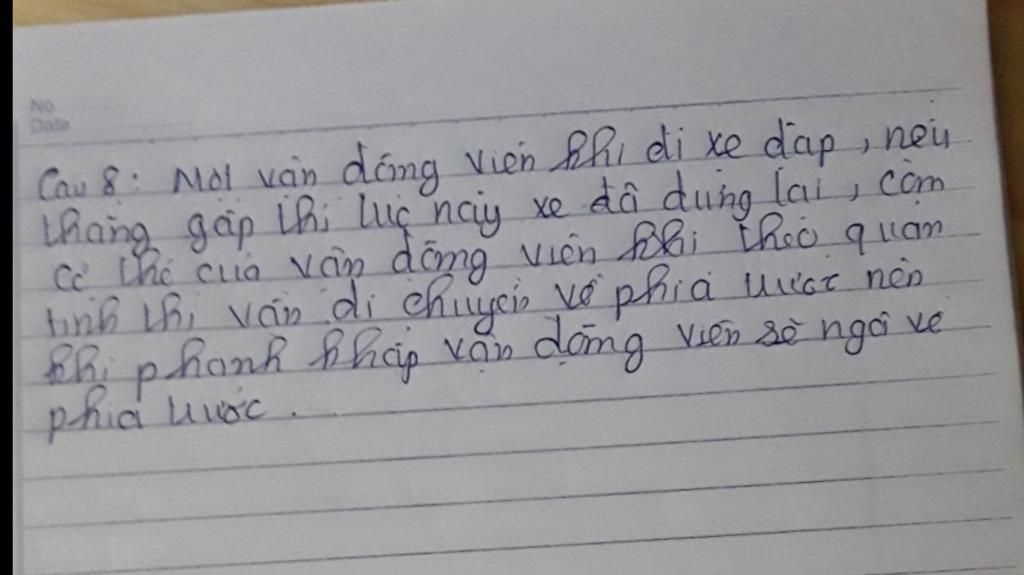 No
Date
Câu 8: Một vận động viên khi đi xe đạp, nếu
thắng gấp thì lúc này xe đã dừng lại, còn
cơ thể của vận động viên khi theo quán
tính thì vẫn di chuyển về phía trước nên
khi phanh khấp vận động viên sẽ ngã về
phía trước.